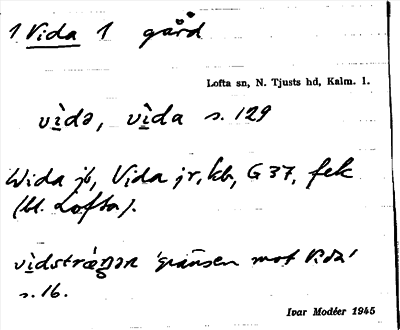 1 Vida 1 gård
Lofta sn, N. Tjusts hd, Kalm. l.
vìdə, vìda s. 129
Wida jb, Vida jr, kb, G 37, fek
(bl. Lofta).
vìdstræ̀ŋən 'gränsen mot Vida'
s. 16.
Ivar Modéer 1945